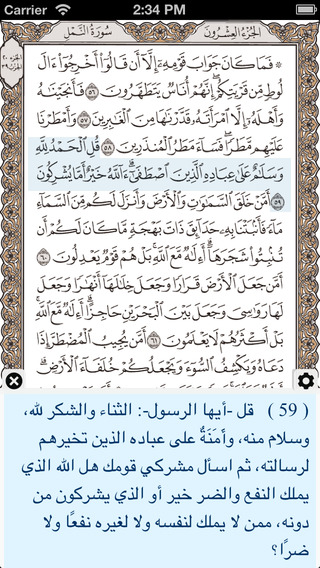 Carrier 2:34 PM
سُورَةُ النَّمْلِ الجُزْءُ العِشْرُونَ
۞ فَمَا كَانَ جَوَابَ قَوْمِهِۦٓ إِلَّآ أَن قَالُوٓا۟ أَخْرِجُوٓا۟ ءَالَ
لُوطٍ مِّن قَرْيَتِكُمْ ۖ إِنَّهُمْ أُنَاسٌ يَتَطَهَّرُونَ ٥٦ فَأَنجَيْنَٰهُ
وَأَهْلَهُۥٓ إِلَّا ٱمْرَأَتَهُۥ قَدَّرْنَٰهَا مِنَ ٱلْغَٰبِرِينَ ٥٧ وَأَمْطَرْنَا
عَلَيْهِم مَّطَرًا ۖ فَسَآءَ مَطَرُ ٱلْمُنذَرِينَ ٥٨ قُلِ ٱلْحَمْدُ لِلَّهِ
وَسَلَٰمٌ عَلَىٰ عِبَادِهِ ٱلَّذِينَ ٱصْطَفَىٰٓ ۗ ءَآللَّهُ خَيْرٌ أَمَّا يُشْرِكُونَ
٥٩ أَمَّنْ خَلَقَ ٱلسَّمَٰوَٰتِ وَٱلْأَرْضَ وَأَنزَلَ لَكُم مِّنَ ٱلسَّمَآءِ
مَآءً فَأَنۢبَتْنَا بِهِۦ حَدَآئِقَ ذَاتَ بَهْجَةٍ مَّا كَانَ لَكُمْ أَن
تُنۢبِتُوا۟ شَجَرَهَآ ۗ أَءِلَٰهٌ مَّعَ ٱللَّهِ ۚ بَلْ هُمْ قَوْمٌ يَعْدِلُونَ ٦٠
أَمَّن جَعَلَ ٱلْأَرْضَ قَرَارًا وَجَعَلَ خِلَٰلَهَآ أَنْهَٰرًا وَجَعَلَ
لَهَا رَوَٰسِىَ وَجَعَلَ بَيْنَ ٱلْبَحْرَيْنِ حَاجِزًا ۗ أَءِلَٰهٌ مَّعَ ٱللَّهِ ۚ
بَلْ أَكْثَرُهُمْ لَا يَعْلَمُونَ ٦١ أَمَّن يُجِيبُ ٱلْمُضْطَرَّ إِذَا
دَعَاهُ وَيَكْشِفُ ٱلسُّوٓءَ وَيَجْعَلُكُمْ خُلَفَآءَ ٱلْأَرْضِ ۗ
( 59 ) قل -أيها الرسول-: الثناء والشكر لله،
وسلام منه، وأَمَنَةٌ على عباده الذين تخيرهم
لرسالته، ثم اسأل مشركي قومك هل الله الذي
يملك النفع والضر خير أو الذي يشركون من
دونه، ممن لا يملك لنفسه ولا لغيره نفعًا ولا
ضرًا؟